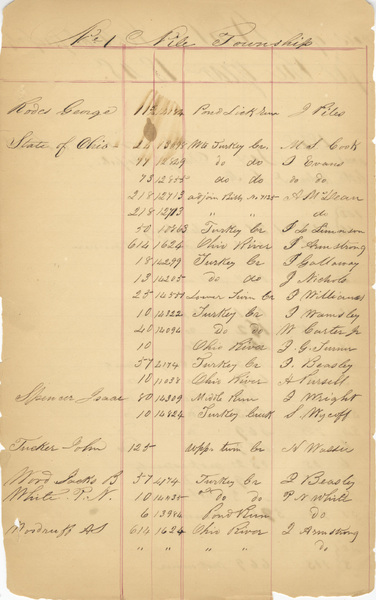 No 1 Nile Township
Rodes George 115 Pond Lick Run J Piles
State of Ohio 24 Turkey Cr. M S Cook
77 12849 do do I Evans
73 12855 do do do do
218 12713 adjoin No 7125 A McLean
218 12713 " " do
50 Turkey Cr
614 1624 Ohio River J Armstrong
18 14299 Turkey Cr J Gallaway
13 14205 do do J Nichols
25 Lower Twin Cr J Williams
10 14322 Turkey Cr J Wamsley
40 14094 Do do W Carter Jr
10 Ohio River J. G. Turner
57 4174 Turkey Cr J. Beasley
10 11038 Ohio River A Pursell
Spencer Isaac 40 14309 Middle Run J Wright
10 14424 Turkey Creek S Wycoff
Tucker John 125 upper twin Cr
Wood Jacks B 57 4174 Turkey Cr J Beasley
White P. N. 10 do do P N White
6 13986 Pond Run do
Woodruff A S 614 1624 Ohio River J Armstrong
" " " " do